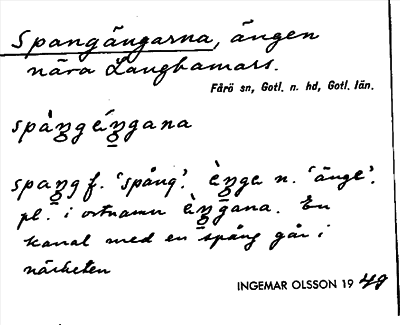 Spangängarna, ängen
nära Langhamars.
Fårö sn, Gotl. n. hd, Gotl. län.
spàŋgéŋgana
spaŋg f. ‘spång’. èŋge n. ‘änge’.
pl. i ortnamn èŋgana. En
kanal med en spång går i
närheten
INGEMAR OLSSON 19 49